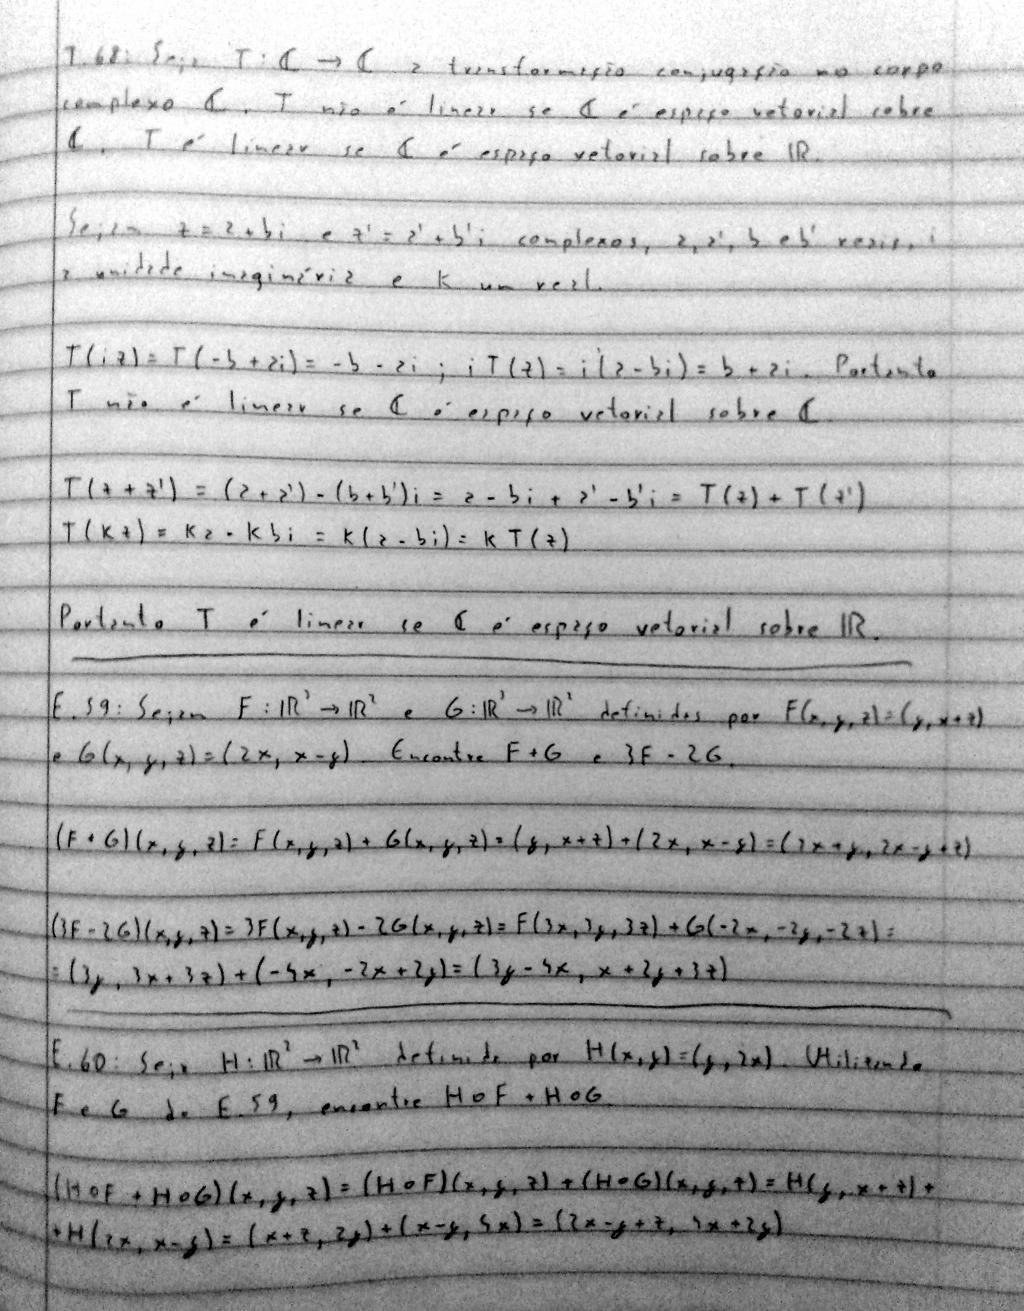 T.68: Seja T: ℂ → ℂ a transformação conjugação no corpo
complexo ℂ. T não é linear se ℂ é espaço vetorial sobre
ℂ. T é linear se ℂ é espaço vetorial sobre IR.
Sejam z = a + bi e z' = a' + b'i complexos, a, a', b e b' reais, i
a unidade imaginária e k um real.
T(iz) = T(-b + ai) = -b - ai ; iT(z) = i(a - bi) = b + ai. Portanto
T não é linear se ℂ é espaço vetorial sobre ℂ.
T(z + z') = (a + a') - (b + b')i = a - bi + a' - b'i = T(z) + T(z')
T(kz) = ka - kbi = k(a - bi) = kT(z)
Portanto T é linear se ℂ é espaço vetorial sobre IR.
E.59: Sejam F: IR³ → IR² e G: IR³ → IR² definidos por F(x, y, z) = (y, x+z)
e G(x, y, z) = (2x, x-y). Encontre F+G e 3F - 2G.
(F+G)(x, y, z) = F(x, y, z) + G(x, y, z) = (y, x+z) + (2x, x-y) = (2x+y, 2x-y+z)
(3F-2G)(x, y, z) = 3F(x, y, z) - 2G(x, y, z) = F(3x, 3y, 3z) + G(-2x, -2y, -2z) =
= (3y, 3x+3z) + (-4x, -2x+2y) = (3y-4x, x+2y+3z)
E.60: Seja H: IR² → IR² definida por H(x, y) = (y, 2x). Utilizando
F e G de E.59, encontre H∘F + H∘G
(H∘F + H∘G)(x, y, z) = (H∘F)(x, y, z) + (H∘G)(x, y, z) = H(y, x+z) +
+ H(2x, x-y) = (x+z, 2y) + (x-y, 4x) = (2x-y+z, 4x+2y)